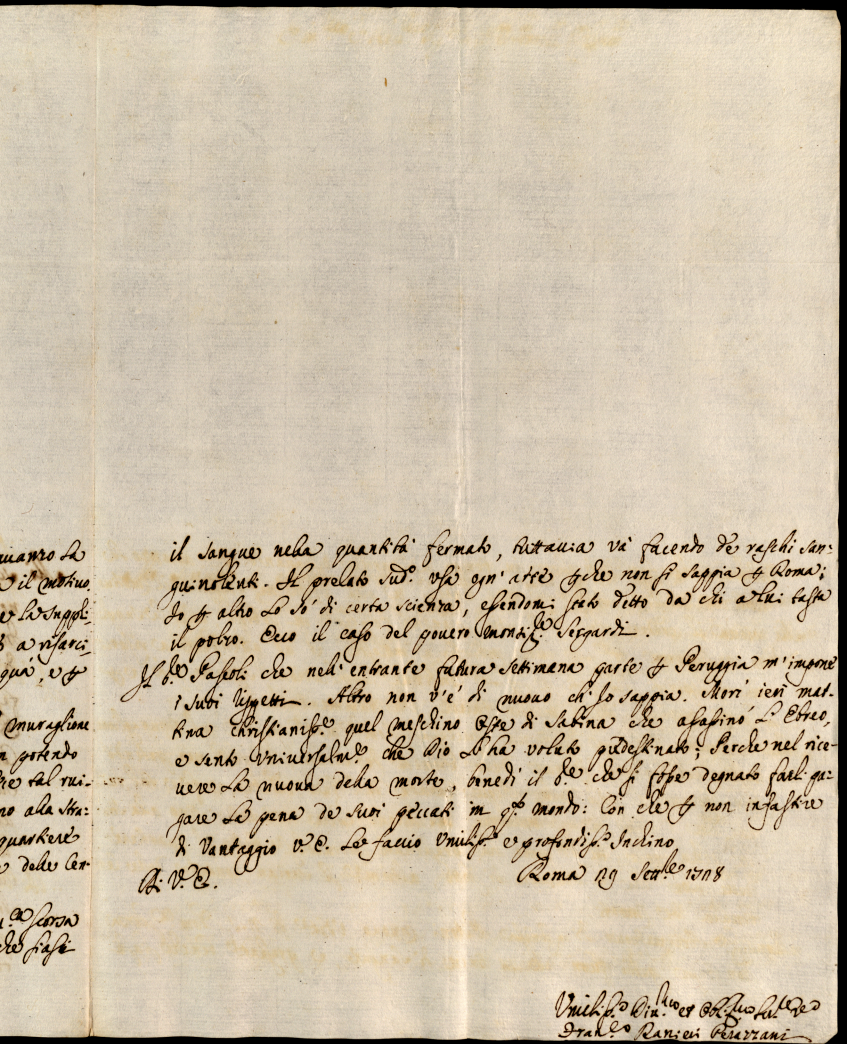 uanzo La
il motivo
e La Suppli-
a risarci-
quá, e ꝑ
muraglione
n potendo
tal rui-
no alla stra-
quartiere
delle Cer-
scorsa
che siasi
il sangue nella quantità fermato, tuttauia và facendo de raschi san-
guinolenti. Il prelato sud.º usa ogn' arte ꝑche non si sappia ꝑ Roma;
Io ꝑ altro Lo só di certa scienza, essendomi stato detto da chi a lui tasta
il polso. Ecco il caso del pouero Monsig.re Sergardi.
Il Pasoli che nell' entrante futura Settimana parte ꝑ Peruggia m' impone
i suoi rispetti. Altro non v'è di nuouo ch' Io sappia. Morí ieri mat-
tina Christianiss.e quel meschino Oste di Sabina che asassinó L' Ebreo,
e sento vniuersalm.e che Dio L' ha voluto p̄destinato; Perche nel rice-
uere La nuoua della morte, benedí il che si fosse degnato farli pa-
gare La pena de suoi peccati in q.to mondo: Con che ꝑ non infastire
di Vantaggio V. E. Le faccio Vmiliss.o e profondiss.o Inchino
Di V. E. Roma 29 Sett.bre
Vmiliss.o Diu.mo et Obl.mo
Fran.co Ranieri Perazzani